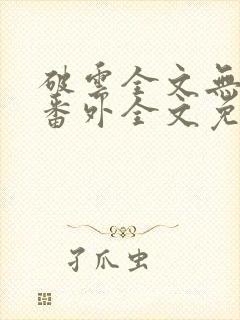 破雲全文無
番外全文免
孑爪虫